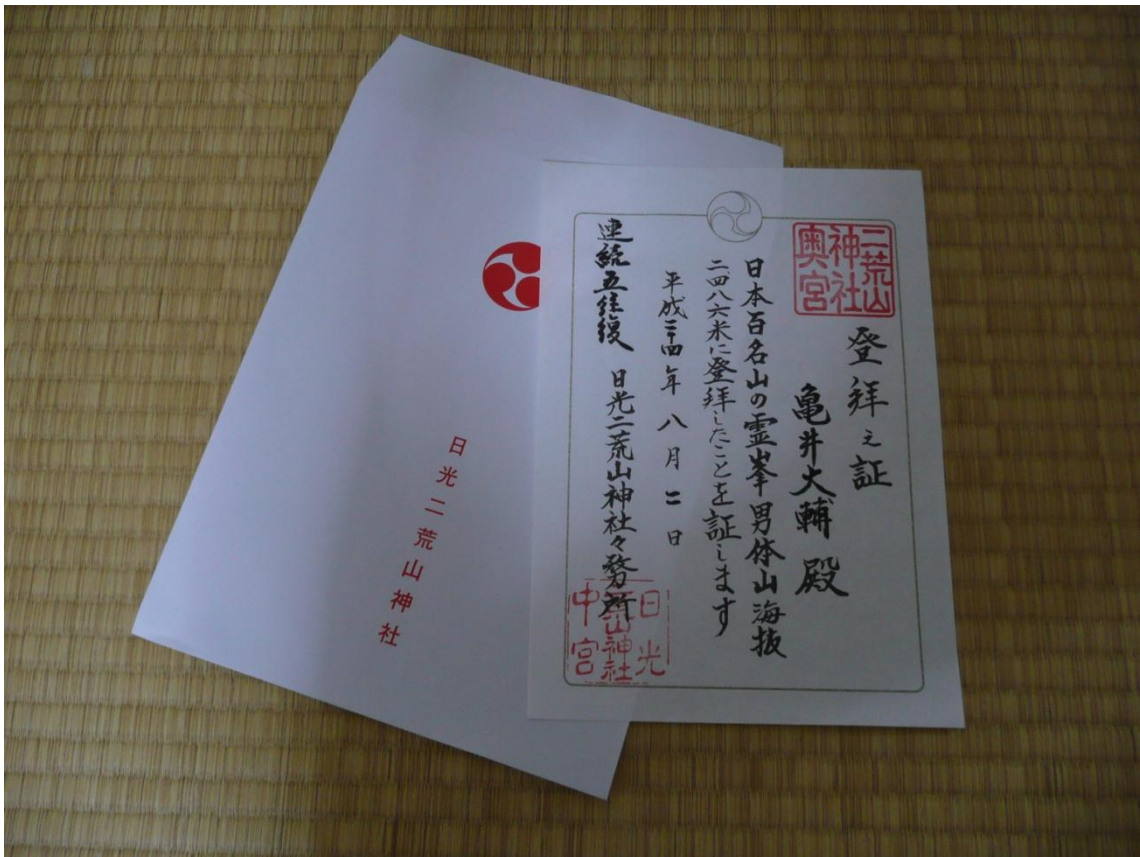 二荒山
神社
奥宮
登拝之証
亀井大輔殿
日本百名山の霊峯男体山海抜
二四八六米に登拝したことを証します
平成二十四年八月二日
連続五往復 日光二荒山神社々務所
日光
二荒山神社
中宮
日光二荒山神社